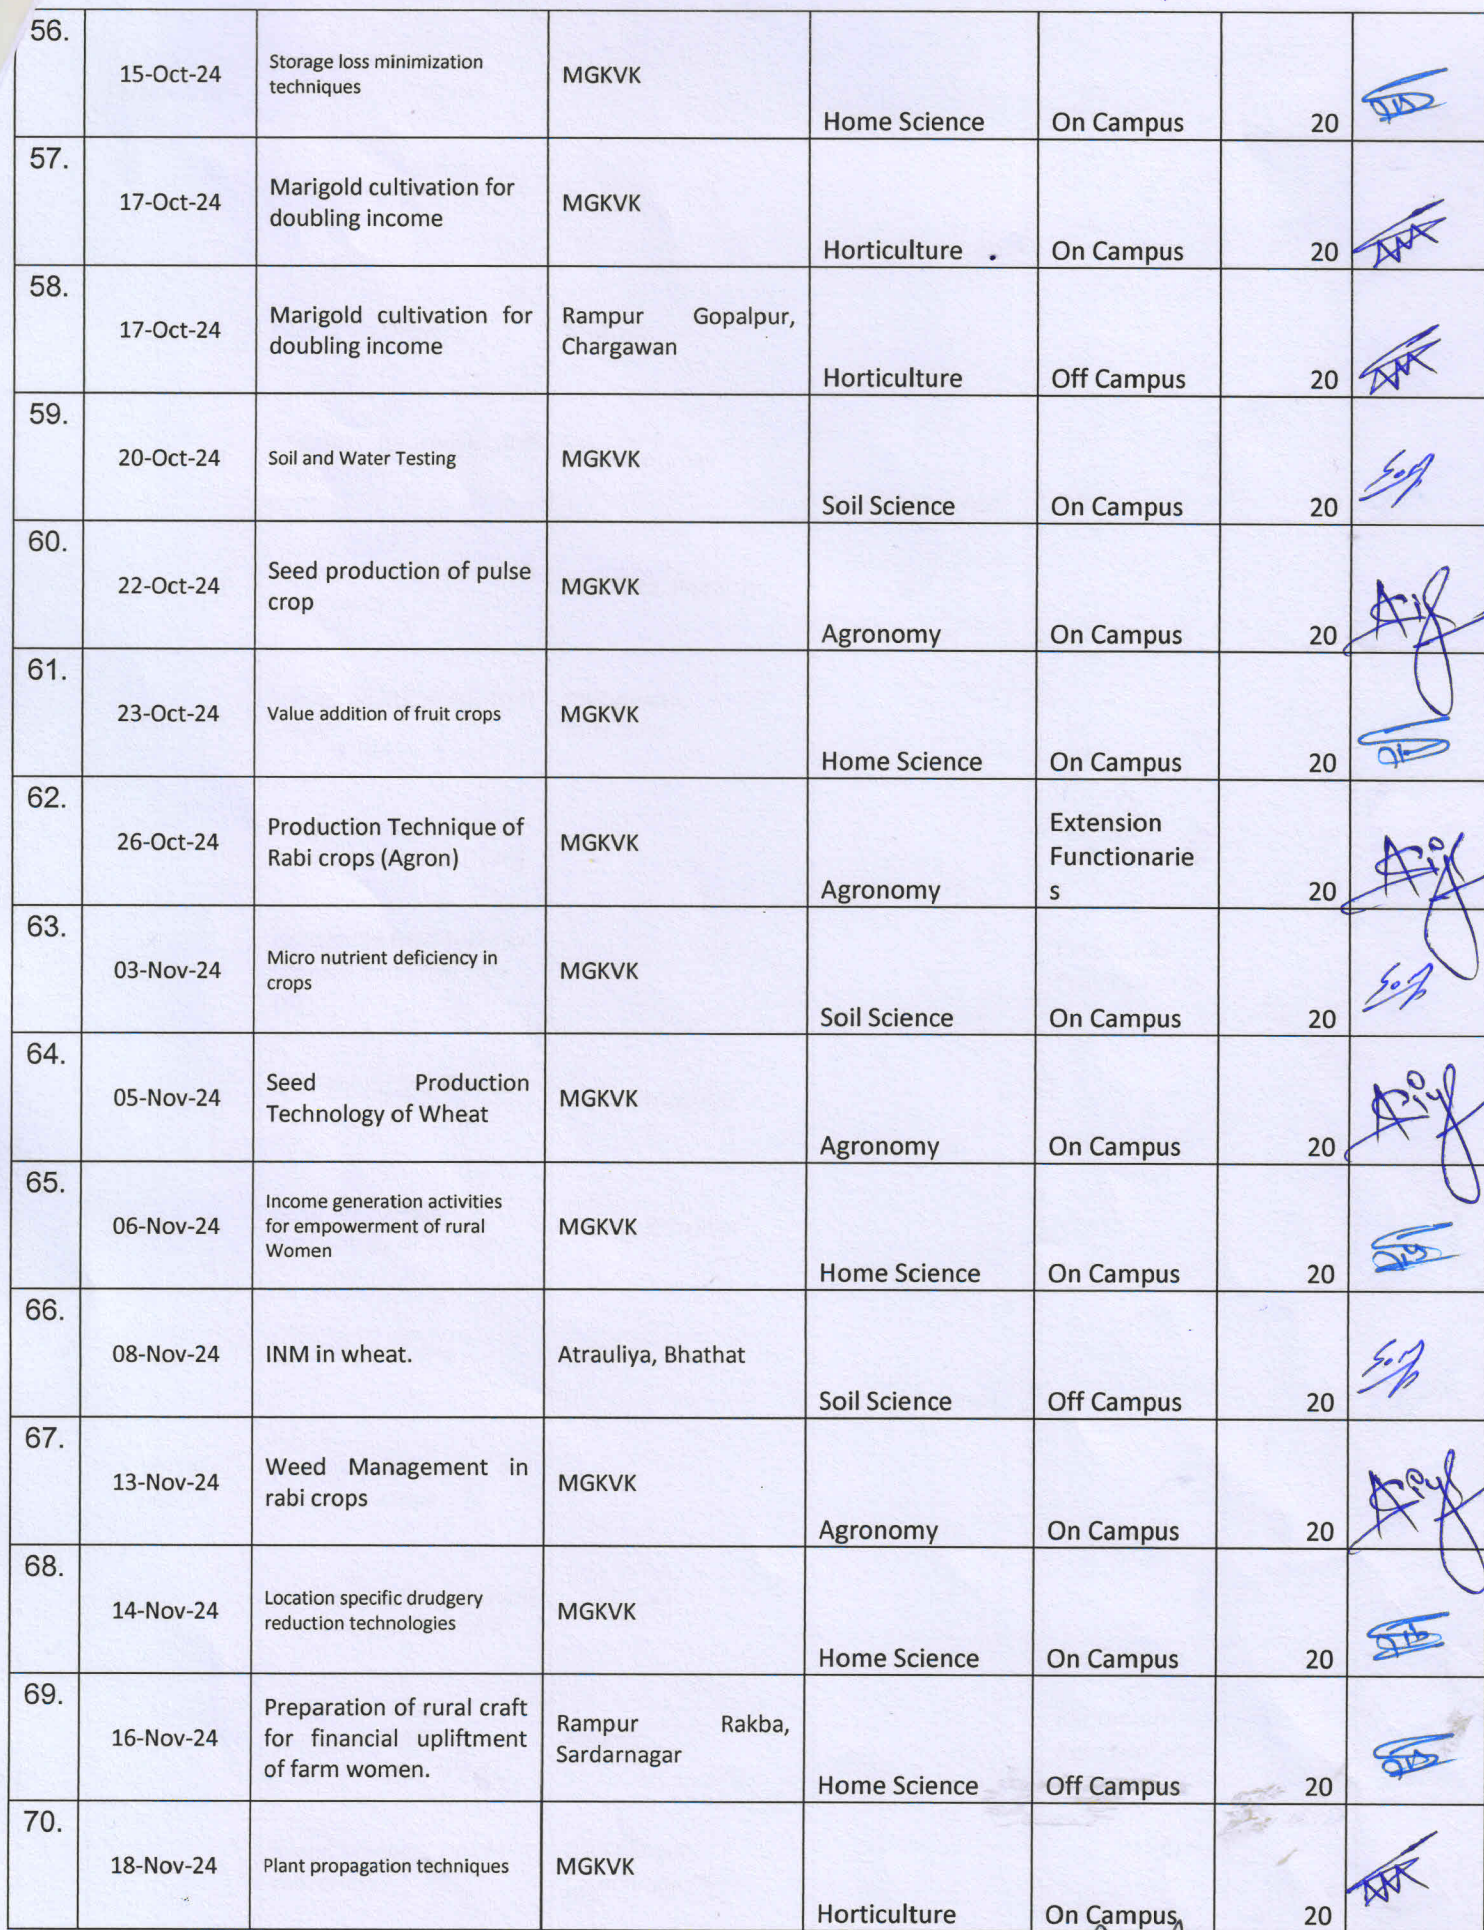 56.
15-Oct-24
Storage loss minimization
techniques
MGKVK
Home Science
On Campus
20
57.
17-Oct-24
Marigold cultivation for
doubling income
MGKVK
Horticulture
On Campus
20
58.
17-Oct-24
Marigold cultivation for
doubling income
Rampur Gopalpur,
Chargawan
Horticulture
Off Campus
20
59.
20-Oct-24
Soil and Water Testing
MGKVK
Soil Science
On Campus
20
60.
22-Oct-24
Seed production of pulse
crop
MGKVK
Agronomy
On Campus
20
61.
23-Oct-24
Value addition of fruit crops
MGKVK
Home Science
On Campus
20
62.
26-Oct-24
Production Technique of
Rabi crops (Agron)
MGKVK
Agronomy
Extension
Functionarie
s
20
63.
03-Nov-24
Micro nutrient deficiency in
crops
MGKVK
Soil Science
On Campus
20
64.
05-Nov-24
Seed Production
Technology of Wheat
MGKVK
Agronomy
On Campus
20
65.
06-Nov-24
Income generation activities
for empowerment of rural
Women
MGKVK
Home Science
On Campus
20
66.
08-Nov-24
INM in wheat.
Atrauliya, Bhathat
Soil Science
Off Campus
20
67.
13-Nov-24
Weed Management in
rabi crops
MGKVK
Agronomy
On Campus
20
68.
14-Nov-24
Location specific drudgery
reduction technologies
MGKVK
Home Science
On Campus
20
69.
16-Nov-24
Preparation of rural craft
for financial upliftment
of farm women.
Rampur Rakba,
Sardarnagar
Home Science
Off Campus
20
70.
18-Nov-24
Plant propagation techniques
MGKVK
Horticulture
On Campus
20